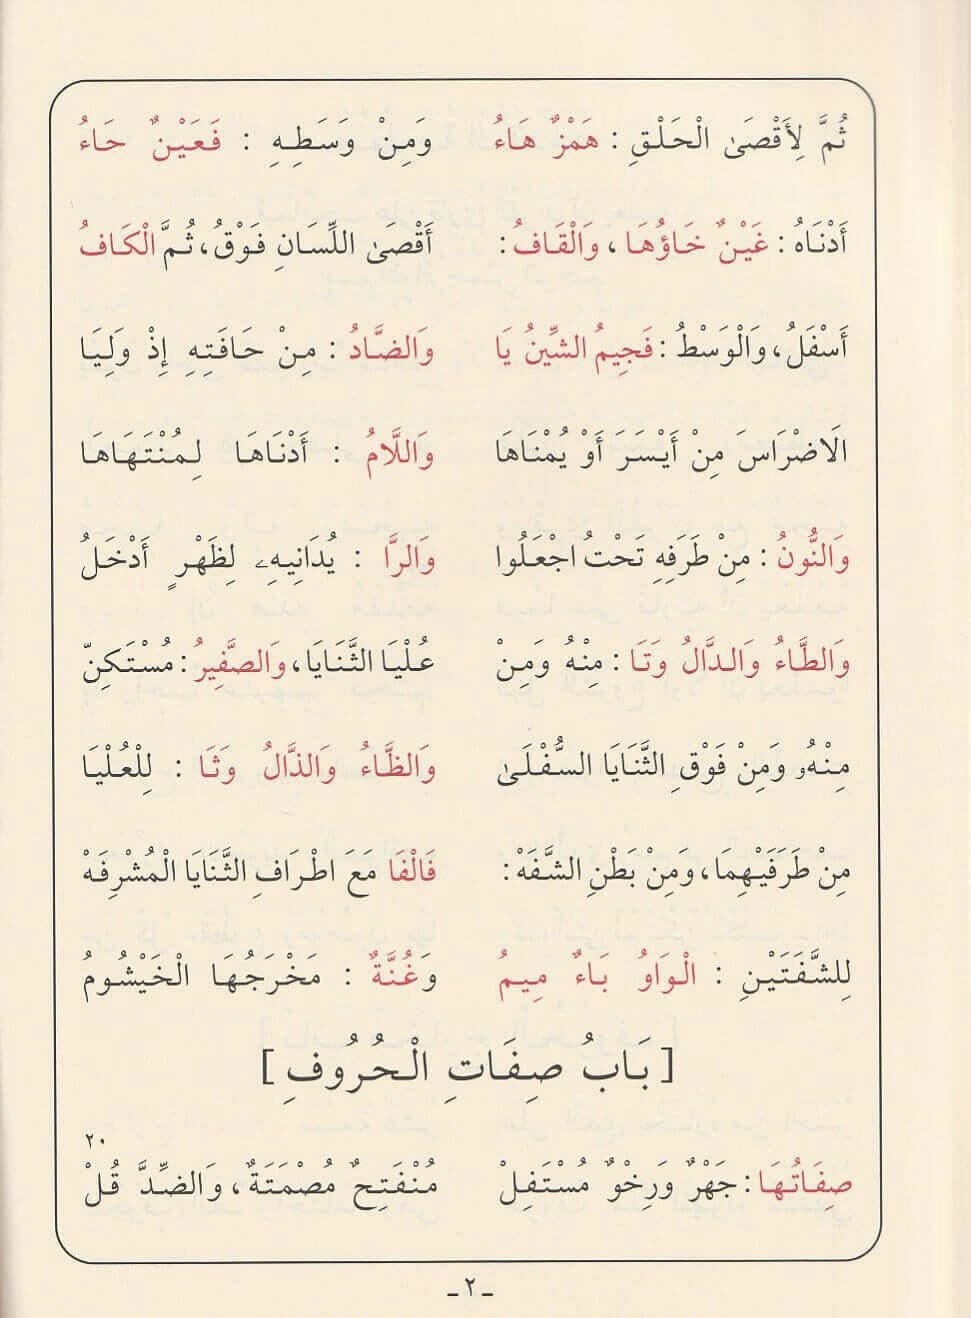 ثُمَّ لِأَقْصَى الْحَلْقِ : هَمْزٌ هَاءُ وَمِنْ وَسَطِهِ : فَعَيْنٌ حَاءُ
أَدْنَاهُ : غَيْنٌ خَاؤُهَا ، وَالْقَافُ : أَقْصَى اللِّسَانِ فَوْقُ ، ثُمَّ الْكَافُ
أَسْفَلُ ، وَالْوَسْطُ : فَجِيمُ الشِّينُ يَا وَالضَّادُ : مِنْ حَافَتِهِ إِذْ وَلِيَا
الَاضْرَاسَ مِنْ أَيْسَرَ أَوْ يُمْنَاهَا وَاللَّامُ : أَدْنَاهَا لِمُنْتَهَاهَا
وَالنُّونُ : مِنْ طَرَفِهِ تَحْتُ اجْعَلُوا وَالرَّا : يُدَانِيهِ لِظَهْرٍ أَدْخَلُ
وَالطَّاءُ وَالدَّالُ وَتَا : مِنْهُ وَمِنْ عُلْيَا الثَّنَايَا ، وَالصَّفِيرُ : مُسْتَكِنّ
مِنْهُ وَمِنْ فَوْقِ الثَّنَايَا السُّفْلَى وَالظَّاءُ وَالذَّالُ وَثَا : لِلْعُلْيَا
مِنْ طَرَفَيْهِمَا ، وَمِنْ بَطْنِ الشَّفَهْ : فَالْفَا مَعَ اطْرَافِ الثَّنَايَا الْمُشْرِفَهْ
لِلشَّفَتَيْنِ : الْوَاوُ بَاءٌ مِيمُ وَغُنَّةٌ : مَخْرَجُهَا الْخَيْشُومُ
[ بَابُ صِفَاتِ الْحُرُوفِ ]
٢٠
صِفَاتُهَا : جَهْرٌ وَرِخْوٌ مُسْتَفِلْ مُنْفَتِحٌ مُصْمَتَةٌ ، وَالضِّدَّ قُلْ
- ٢ -